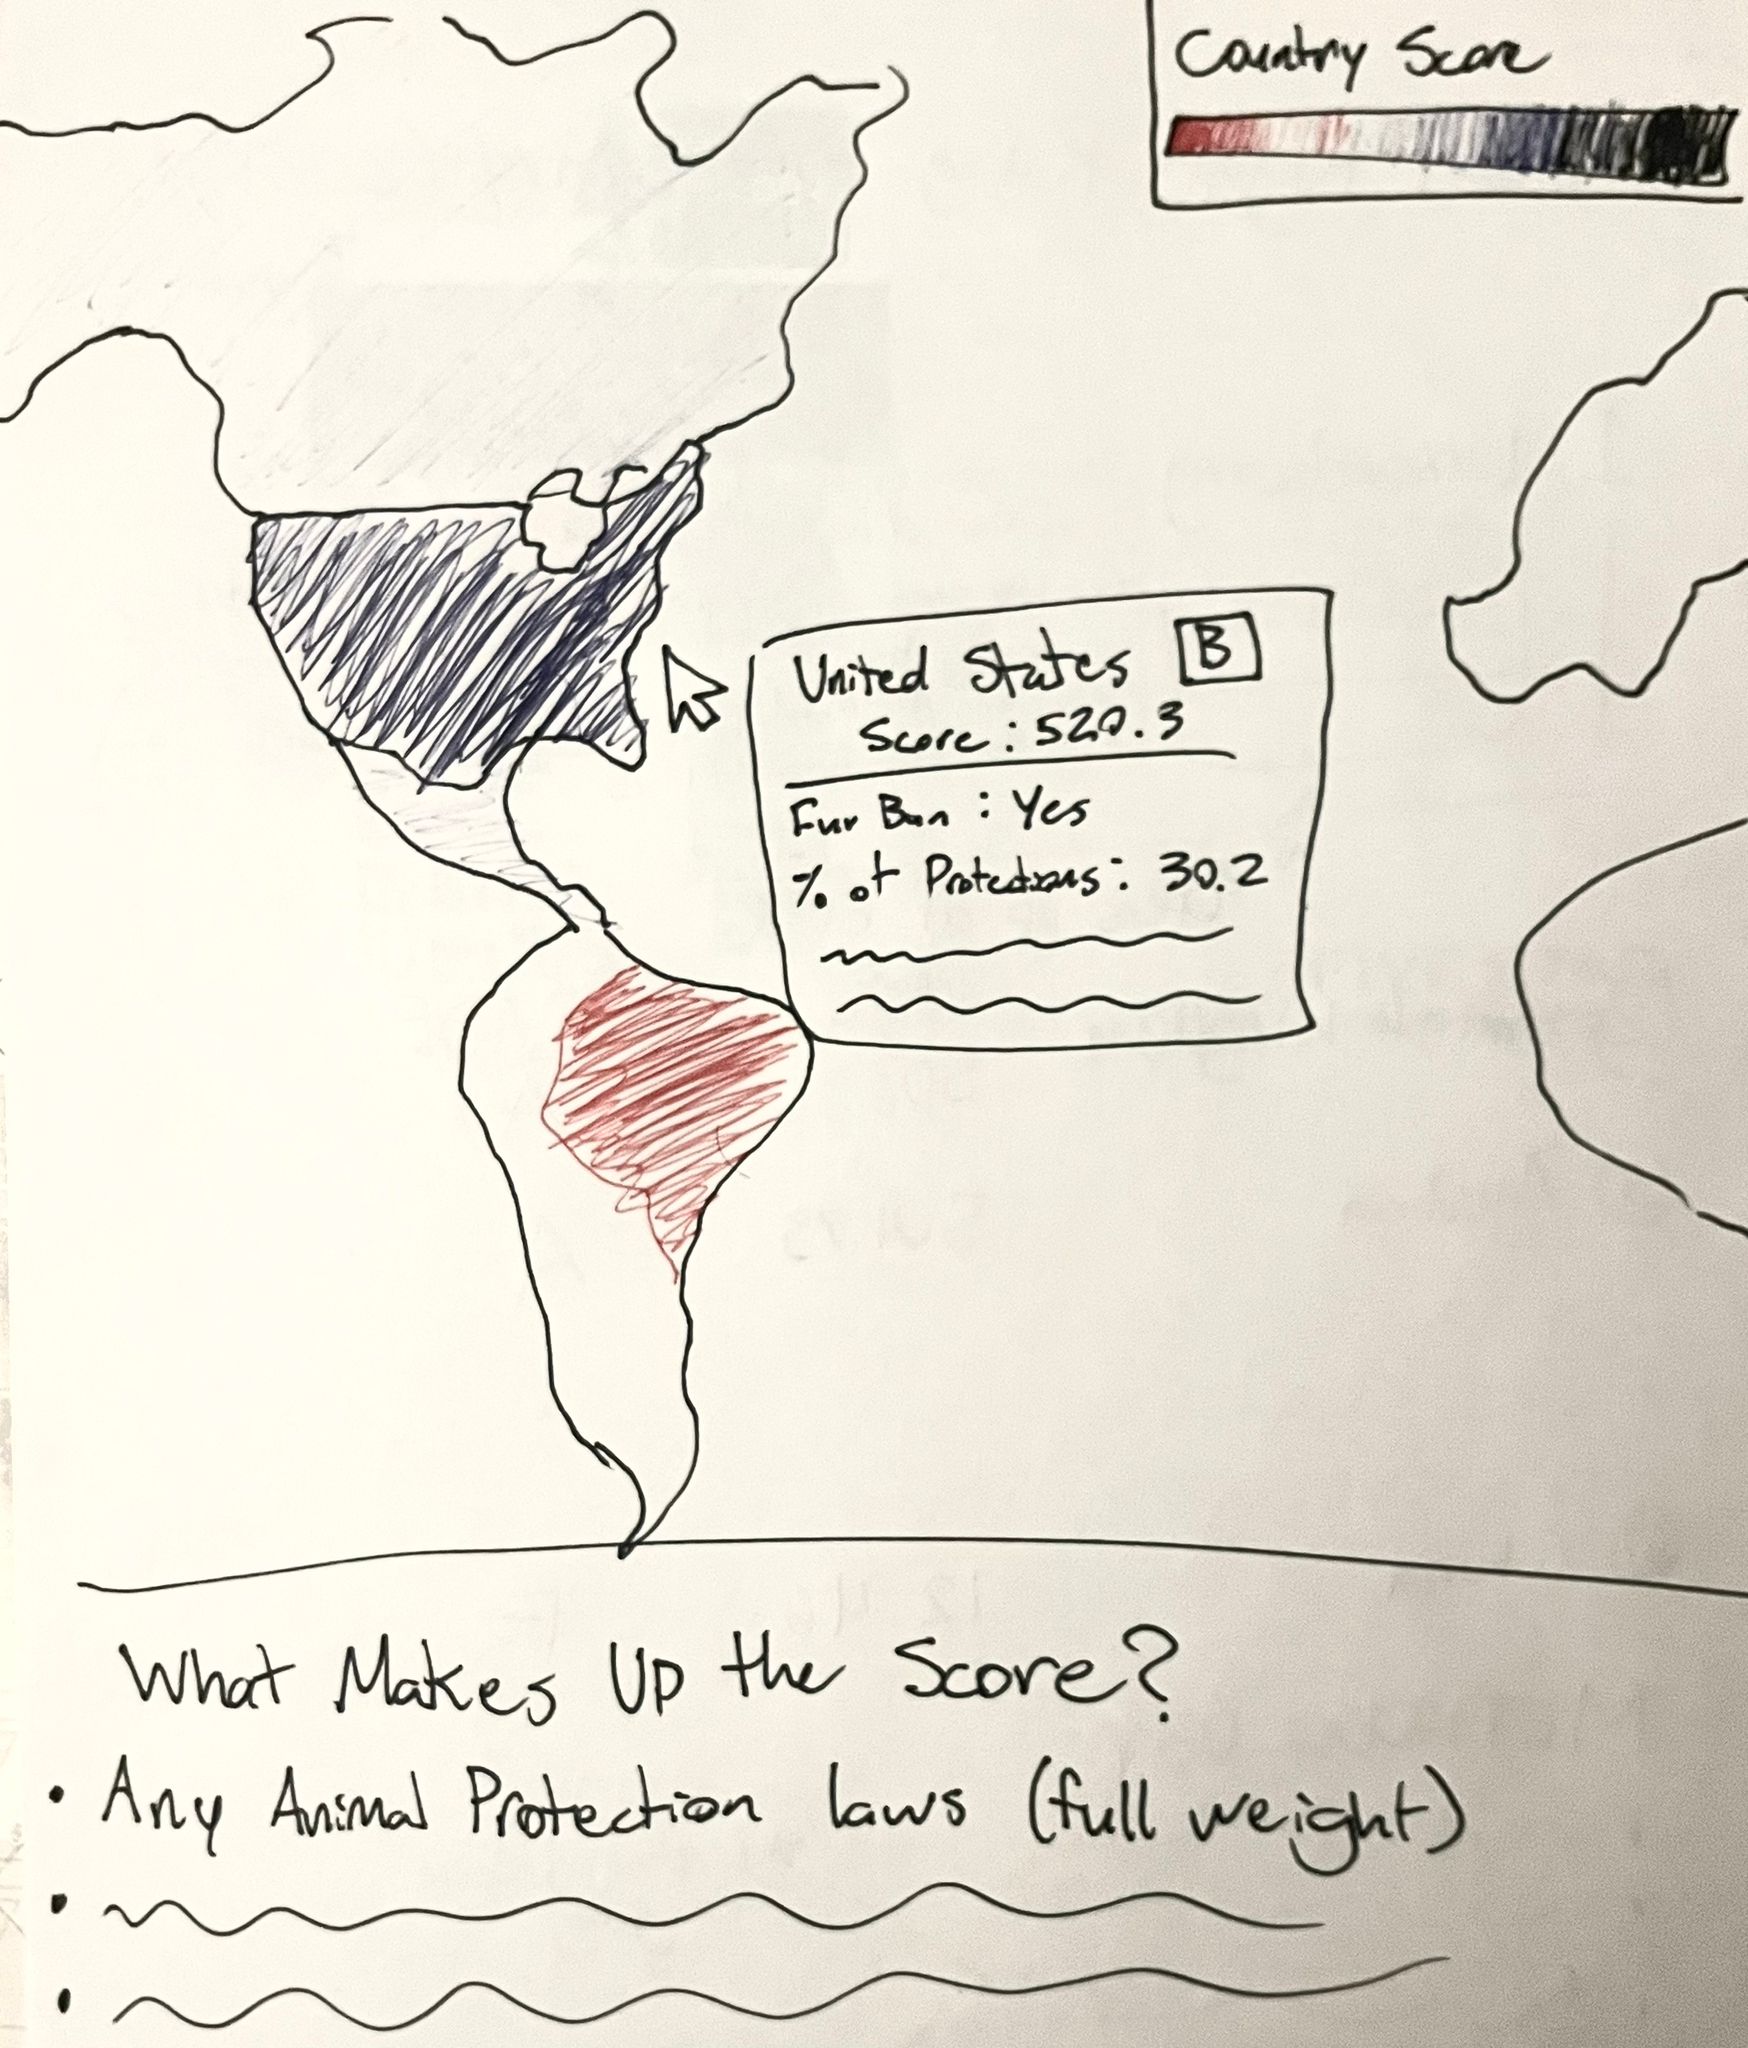 Country Score
United States B
Score: 520.3
Fur Ban: Yes
% of Protections: 30.2
What Makes Up the Score?
• Any Animal Protection laws (full weight)